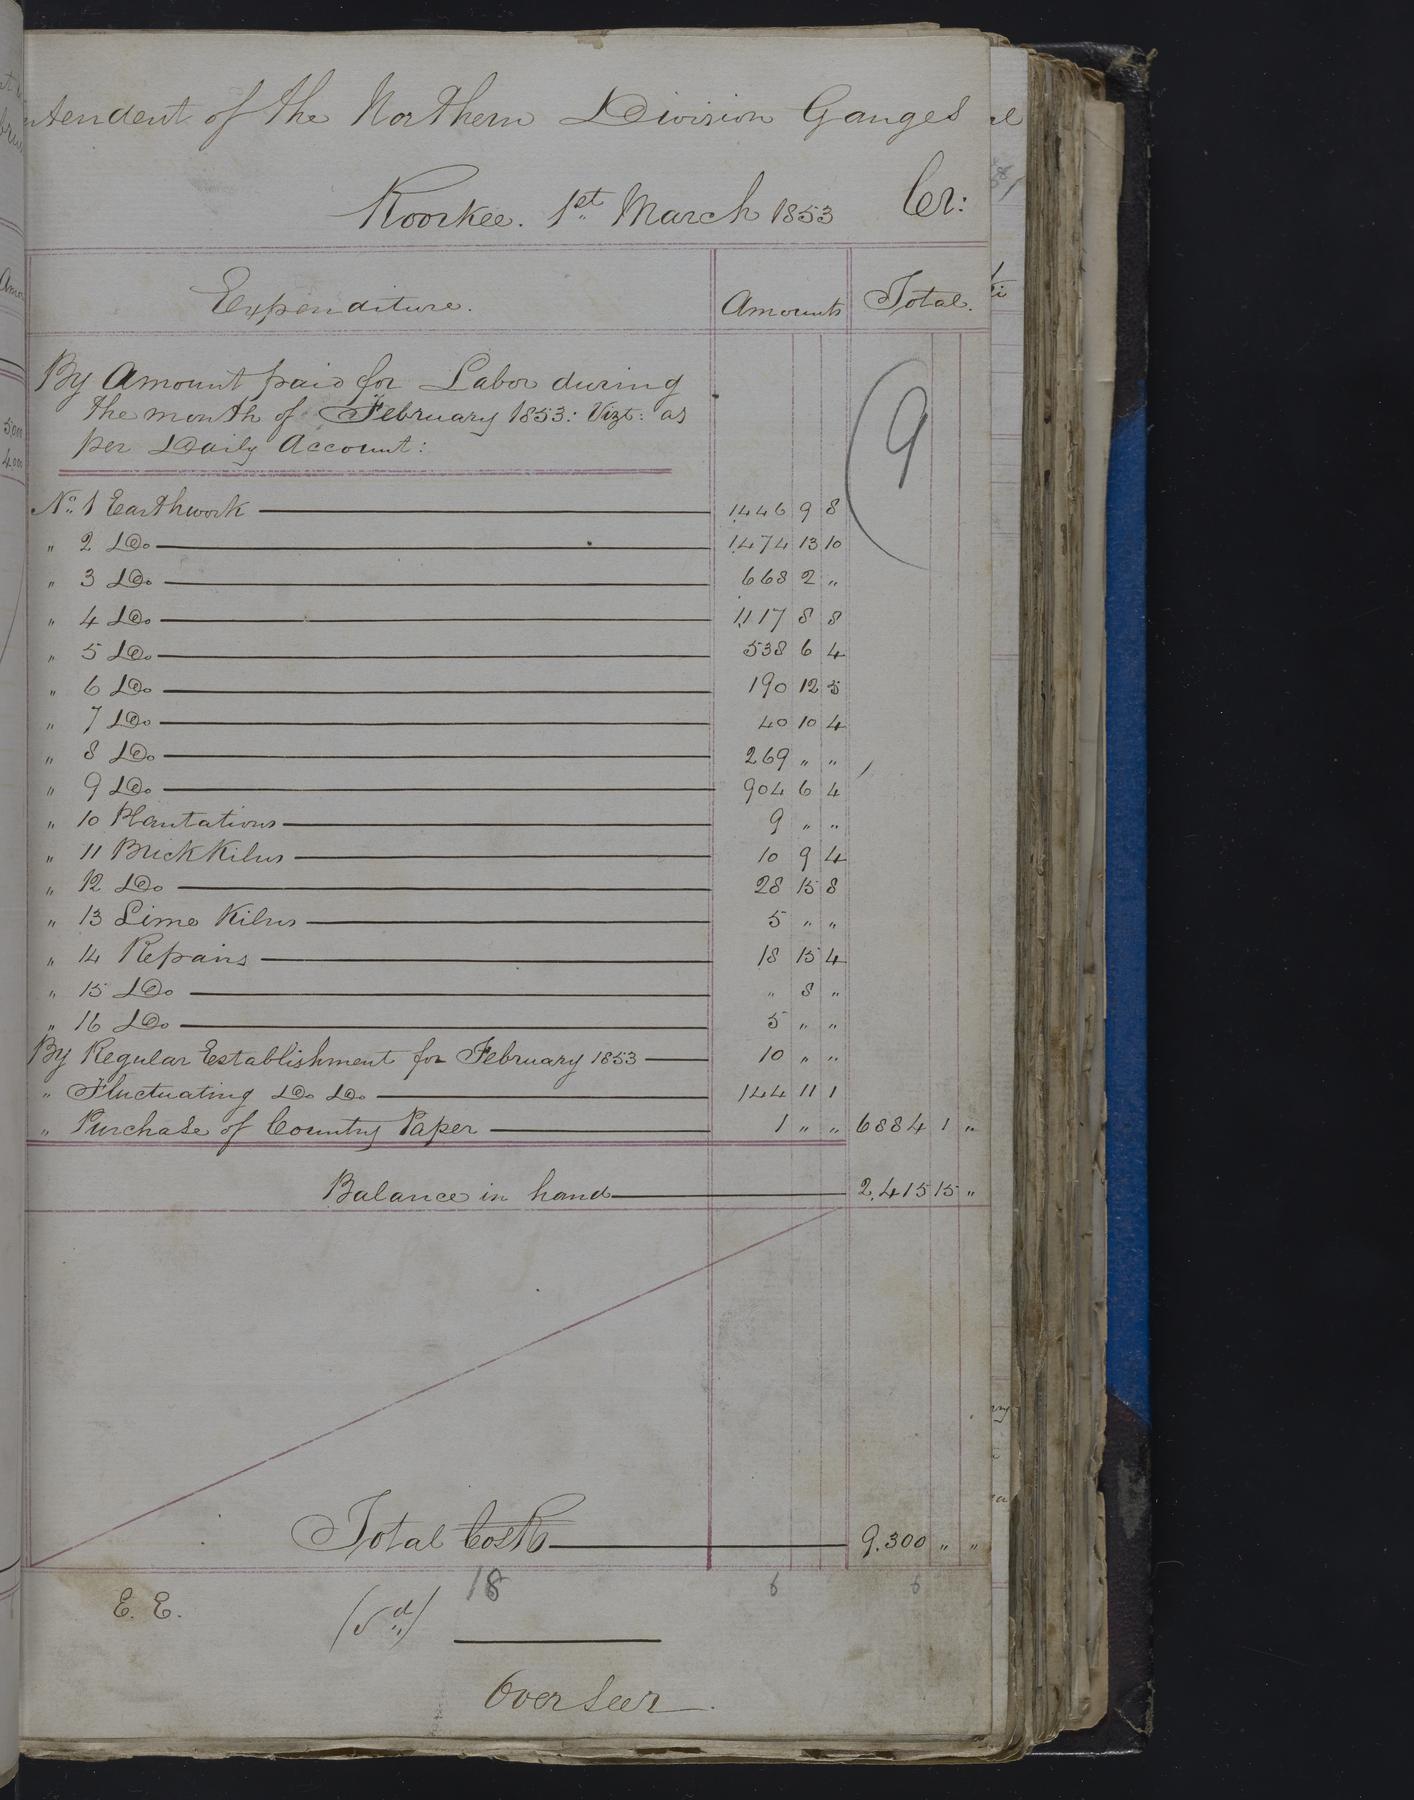 ntendent of the Northern Division Ganges
Roorkee. 1st March 1853 Cr:
Expenditure. Amounts Total.
By Amount paid for Labor during
the month of February 1853: Vizt: as
per Daily Account:
9
No. 1 Earthwork 1446 9 8
" 2 Do 1474 13 10
" 3 Do 668 2 "
" 4 Do 1117 8 8
" 5 Do 538 6 4
" 6 Do 190 12 5
" 7 Do 40 10 4
" 8 Do 269 " "
" 9 Do 904 6 4
" 10 Plantations 9 " "
" 11 Brick Kilns 10 9 4
" 12 Do 28 15 8
" 13 Lime Kilns 5 " "
" 14 Repairs 18 15 4
" 15 Do " 8 "
" 16 Do 5 " "
By Regular Establishment for February 1853 10 " "
" Fluctuating Do Do 144 11 1
" Purchase of Country Paper 1 " " 6884 1 "
Balance in hand 2,415 15 "
Total Co's Rs 9.300 " "
18 6 6
E. E. (Sd)
Overseer.